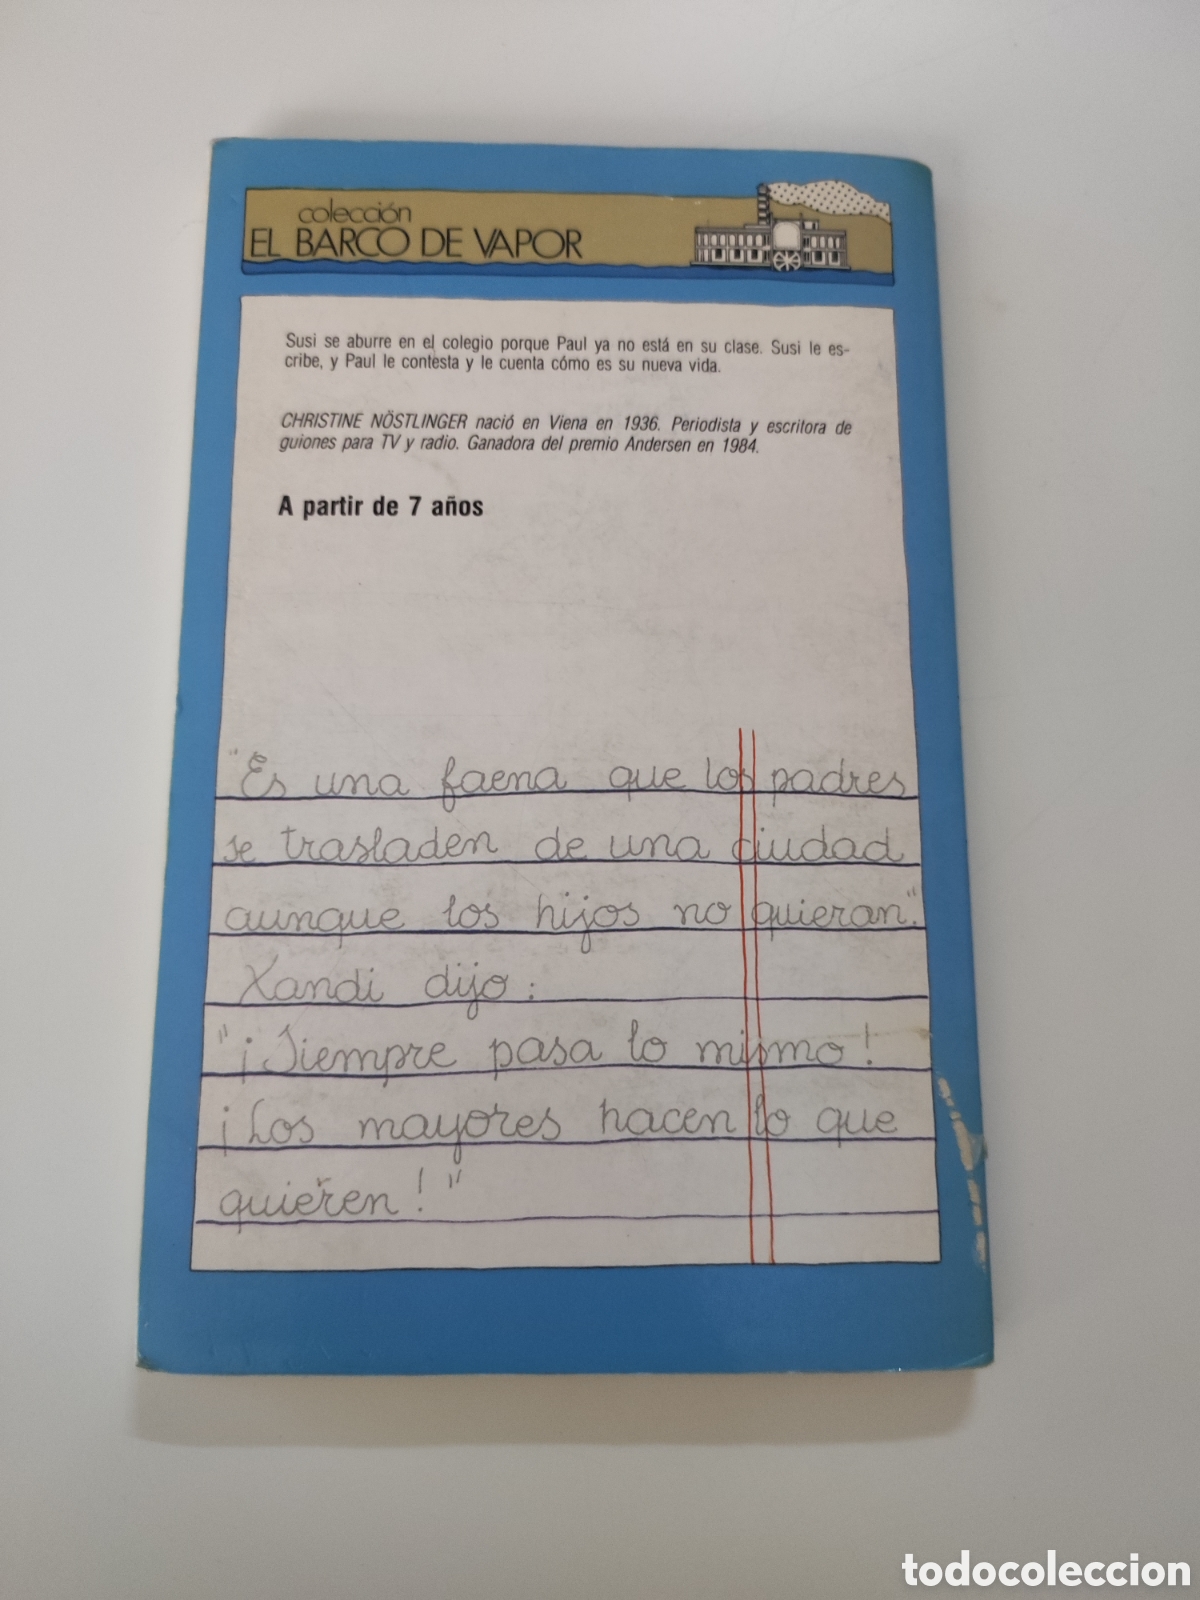 colección
EL BARCO DE VAPOR
Susi se aburre en el colegio porque Paul ya no está en su clase. Susi le es-
cribe, y Paul le contesta y le cuenta cómo es su nueva vida.
CHRISTINE NÖSTLINGER nació en Viena en 1936. Periodista y escritora de
guiones para TV y radio. Ganadora del premio Andersen en 1984.
A partir de 7 años
"Es una faena que los padres
se trasladen de una ciudad
aunque los hijos no quieran".
Xandi dijo:
"¡Siempre pasa lo mismo!
¡Los mayores hacen lo que
quieren!"
todocoleccion